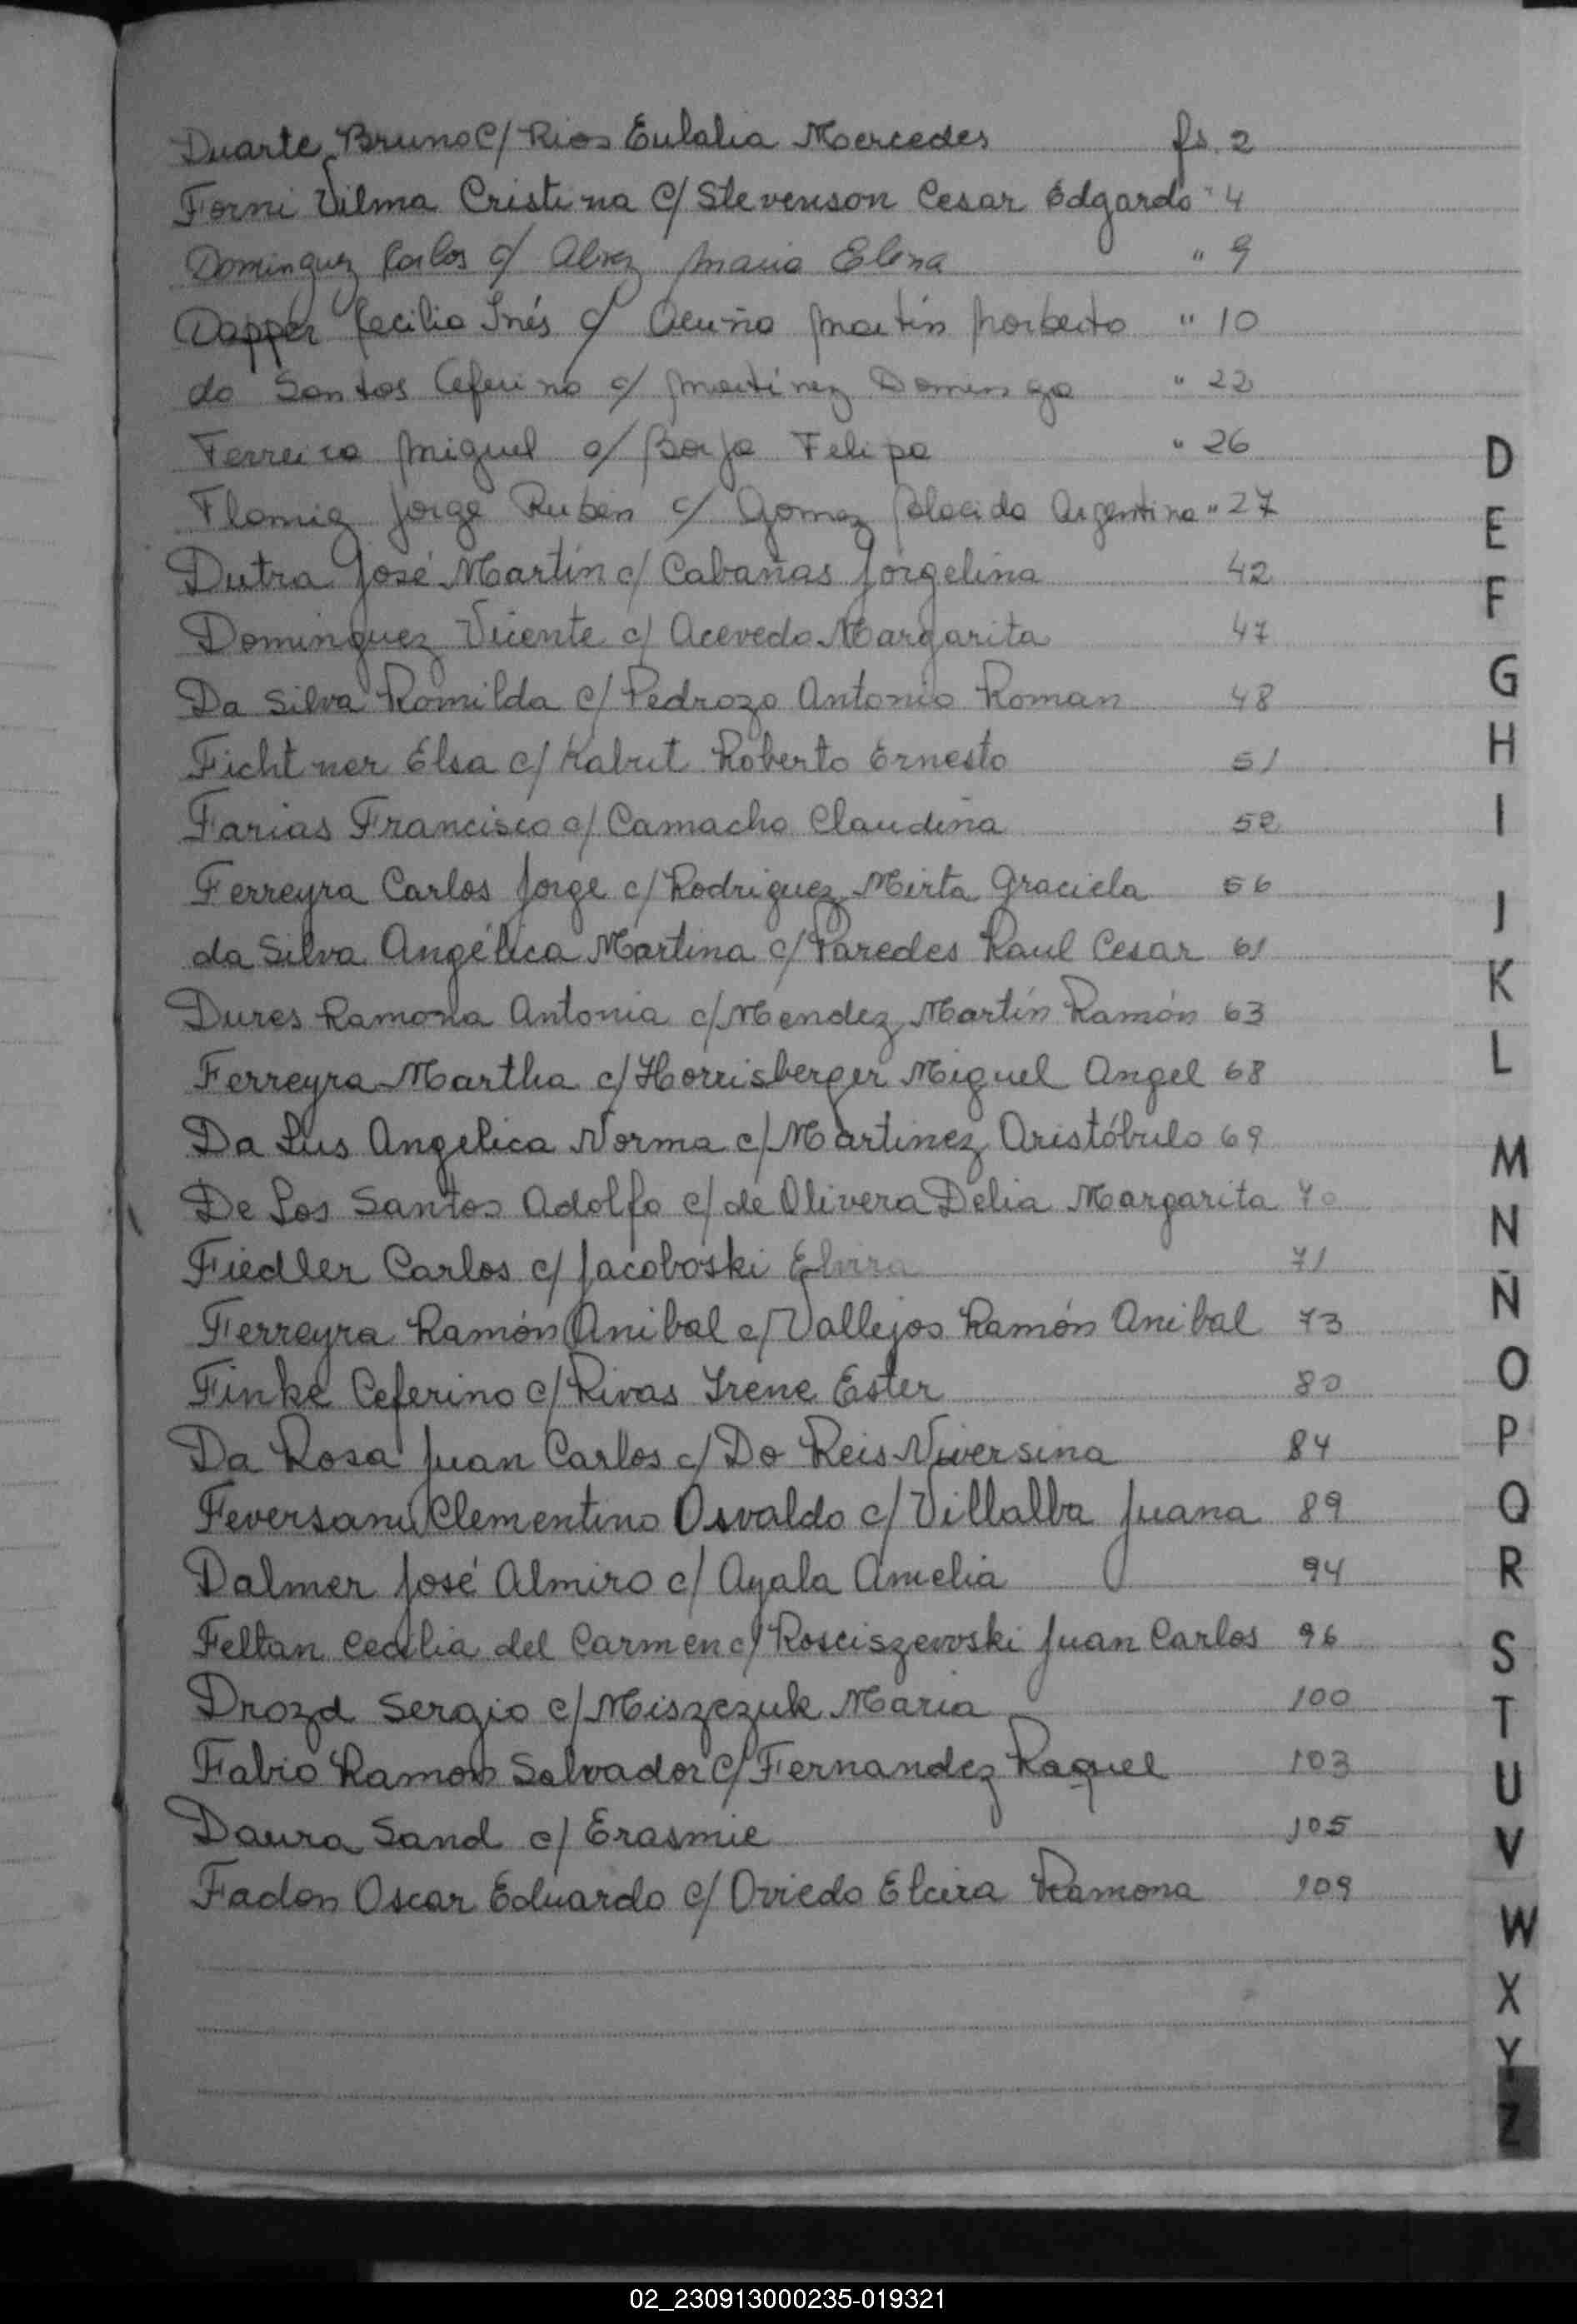 Duarte Bruno C/ Rios Eulalia Mercedes fs. 2
Forni Vilma Cristina C/ Stevenson Cesar Edgardo " 4
Dominguez Carlos c/ Alvez Maria Elena " 9
Dapper Cecilia Inés c/ Acuña Martín Norberto " 10
do Santos Ceferino c/ Martinez Dominga " 22
Ferreira Miguel c/ Borja Felipa " 26
Flamig Jorge Ruben c/ Gomez Placida Argentina " 27
Dutra José Martín c/ Cabañas Jorgelina 42
Dominguez Vicente c/ Acevedo Margarita 47
Da Silva Romilda c/ Pedrozo Antonio Roman 48
Fichtner Elsa c/ Kabut Roberto Ernesto 51
Farias Francisco c/ Camacho Claudina 52
Ferreyra Carlos Jorge c/ Rodriguez Mirta Graciela 56
da Silva Angélica Martina c/ Paredes Raul Cesar 61
Dures Ramona Antonia c/ Mendez Martín Ramón 63
Ferreyra Martha c/ Horrisberger Miguel Angel 68
Da Lus Angelica Norma c/ Martinez Aristóbulo 69
De Los Santos Adolfo c/ de Olivera Delia Margarita 70
Fiedler Carlos c/ Jacoboski Elvira 71
Ferreyra Ramón Anibal c/ Vallejos Ramón Anibal 73
Finke Ceferino c/ Rivas Irene Ester 80
Da Rosa Juan Carlos c/ Do Reis Niversina 84
Feversani Clementino Osvaldo c/ Villalba Juana 89
Dalmer José Almiro c/ Ayala Amelia 94
Feltan Cecilia del Carmen c/ Rosciszewski Juan Carlos 96
Drozd Sergio c/ Miszczuk Maria 100
Fabio Ramon Salvador C/ Fernandez Raquel 103
Daura Sand c/ Erasmie 105
Fadon Oscar Eduardo c/ Oviedo Elcira Ramona 109
D
E
F
G
H
I
J
K
L
M
N
Ñ
O
P
Q
R
S
T
U
V
W
X
Y
Z
02_230913000235-019321